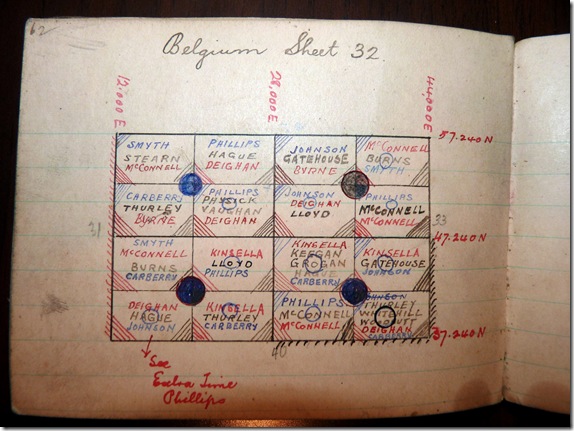 62
Belgium Sheet 32
12.000 E
28,000 E
44000 E
57.240 N
SMYTH
STEARN
McCONNELL
PHILLIPS
HAGUE
DEIGHAN
JOHNSON
GATEHOUSE
BYRNE
McCONNELL
BURNS
SMYTH
CARBERRY
THURLEY
BYRNE
PHILLIPS
PHYSICK
VAUGHAN
DEIGHAN
JOHNSON
DEIGHAN
LLOYD
PHILLIPS
McCONNELL
31
33
47.240 N
SMYTH
McCONNELL
BURNS
CARBERRY
KINSELLA
LLOYD
PHILLIPS
KINSELLA
KEEGAN
GROGAN
HAGUE
CARBERRY
KINSELLA
GATEHOUSE
JOHNSON
DEIGHAN
HAGUE
JOHNSON
KINSELLA
THURLEY
CARBERRY
PHILLIPS
McCONNELL
McCONNELL
JOHNSON
THURLEY
WHITEHILL
DEIGHAN
CARBERRY
37.240 N
40
See
Extra Time
Phillips